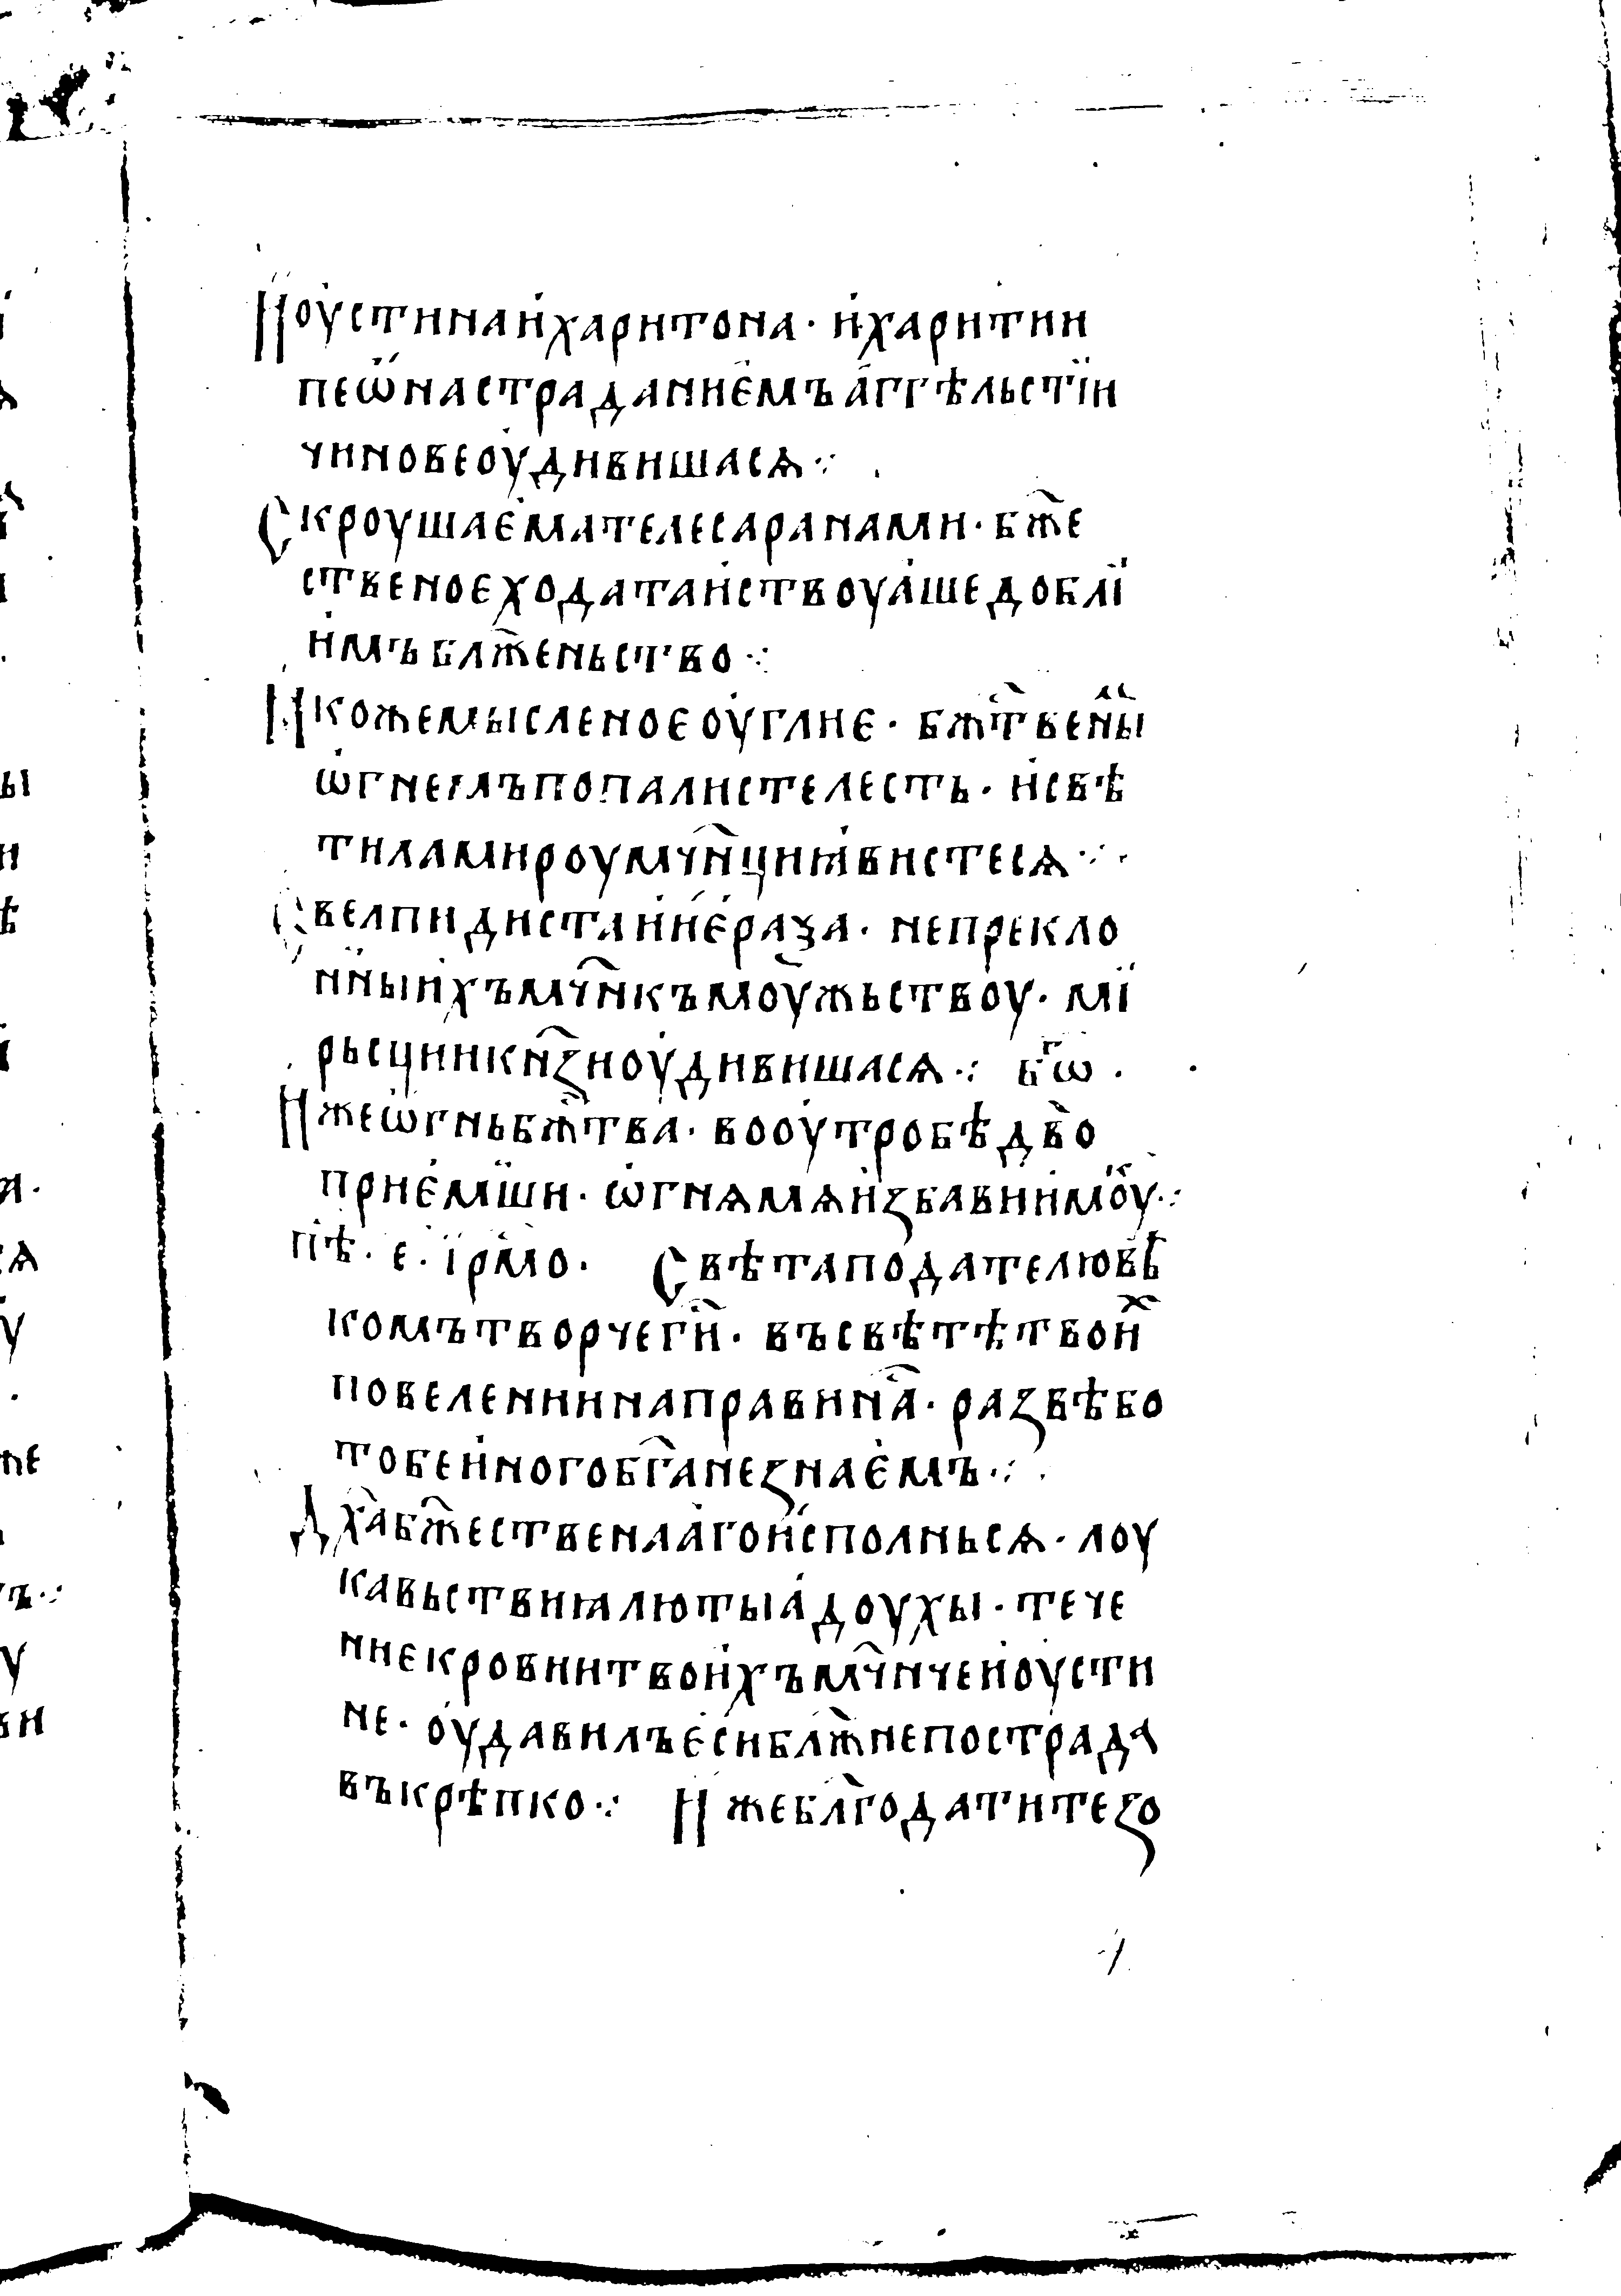 Иоустина и харитона · и харитии
пеѡна страданиемъ аггѣльстїи
чинове оудивишася ⁘
Скроушаема телеса ранами · бж҃е
ственое ходатаиствоуаше доблїи
имъ блж҃еньство ⁘
Ꙗкоже мысленое оуглие · бжⷭ҇твены
ѡгнемъ попалисте лесть · и свѣ
тила мироу мч҃нци ꙗвистеся ⁘
Свелпидистаи и ераѯа · непрекло
нныи ихъ мч҃нкъ моужьствоу · мї
рьсции кнѧ҃зи оудивишася ⁘ бⷢ҇ѡ ·
Иже ѡгнь бжⷭ҇тва · во оутробѣ дв҃о
приемши · ѡгня мя избави и моⷦ҇у ⁘
пⷭ҇ѣ · е · їрмо · Свѣта подателю вⷺ
комъ творче гн҃и · въ свѣтѣ твоиⷯ
повелении направи на҃ · развѣ бо
тобе иного бг҃а не знаемъ ⁘
Дх҃а бж҃ественааго исполнься · лоу
кавьствиꙗ лютыа доухы · тече
ние крови и твоихъ мч҃нче иоусти
не · оудавилъ еси блж҃не пострада
въ крѣпко ⁘ Иже бл҃годати тезо